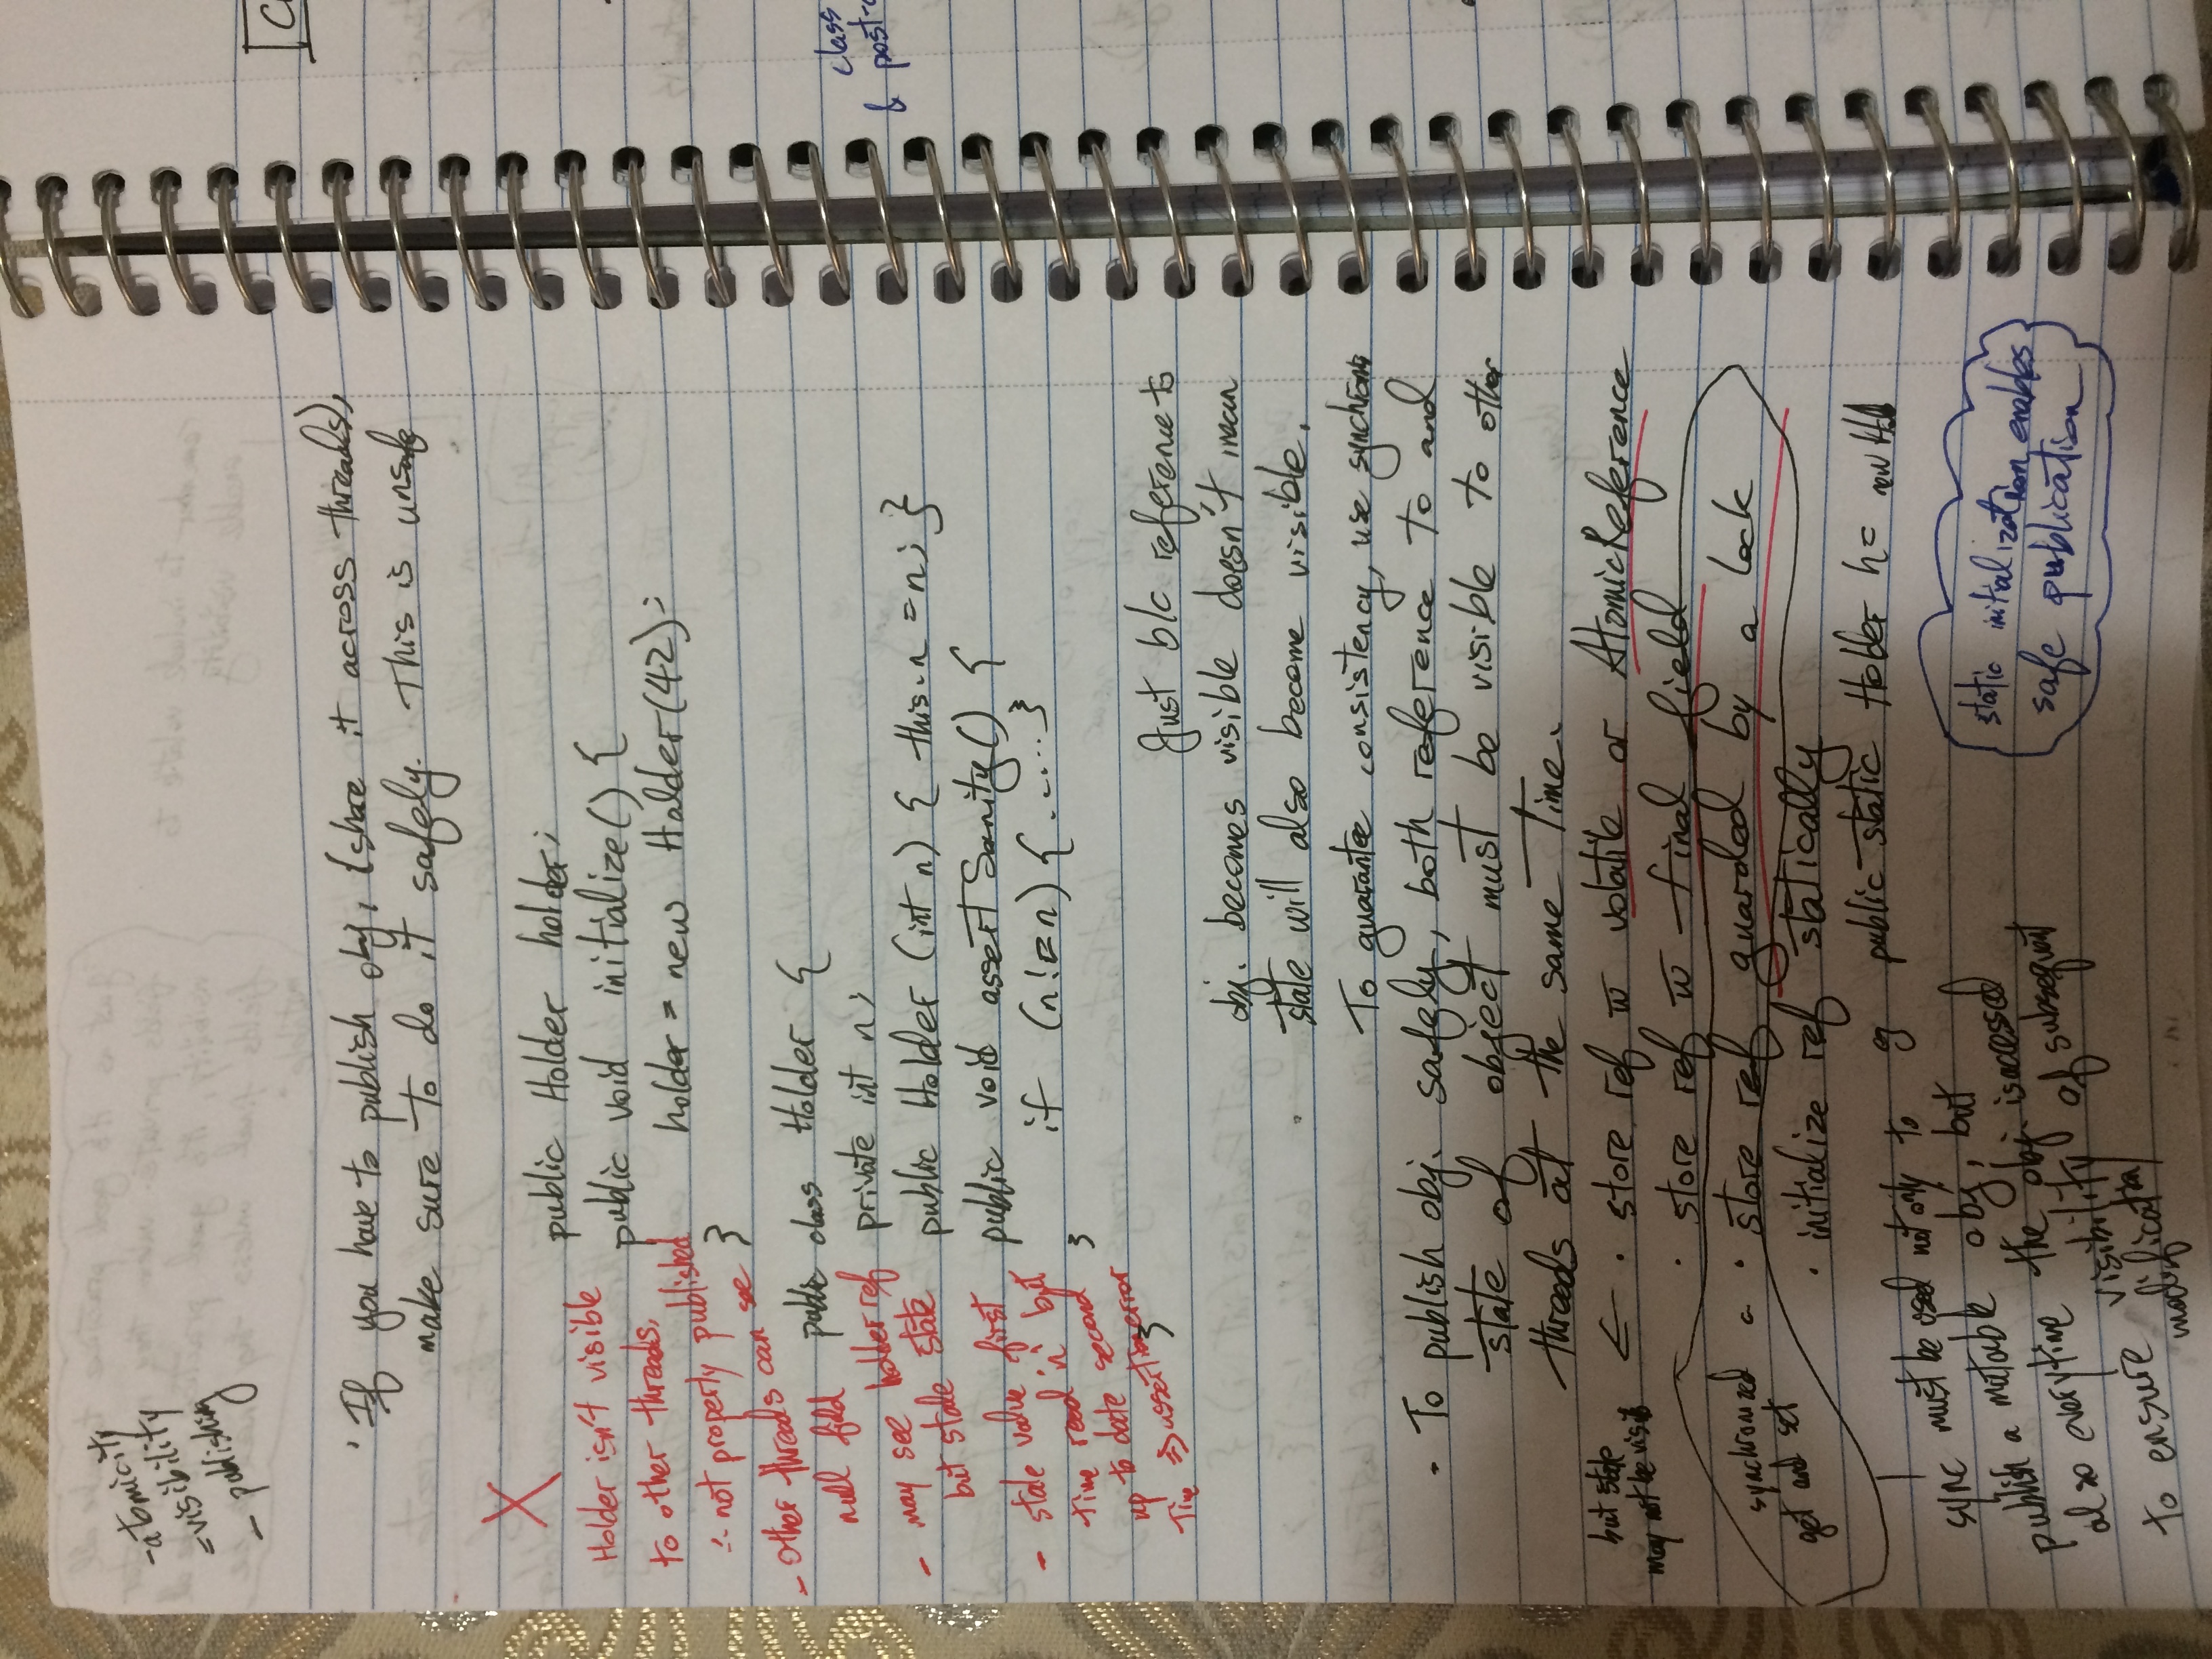 - atomicity
= visibility
- publishing
· If you have to publish obj, (share it across threads),
make sure to do it safely. This is unsafe
X
Holder isn't visible
to other threads,
∴ not property published
- Other threads can see
null field
- may see holder ref
but stale state
- stale value first
time read 'n' but
up to date second
Time => assertion error
public Holder holder;
public void initialize() {
holder = new Holder(42);
}
public class Holder {
private int n;
public Holder (int n) { this.n = n; }
public void assertSanity() {
if (n != n) { ...... }
}
}
Just b/c reference to
obj. becomes visible doesn't mean
state will also become visible.
To guarantee consistency, use
· To publish obj. safely, both reference to and
state of object must be visible to other
threads at the same Time.
but state
may not be
<- · store ref w̅ volatile or AtomicReference
· store ref w̅ final field
synchronized
get and set
· store ref guarded by a lock
· initialize ref statically
eg public static Holder h = new
sync must be used not only to
publish a mutable obj, but
also everytime the obj. is accessed
to ensure visibility of subsequent
modification
static initialization enables
safe publication
class
& post-